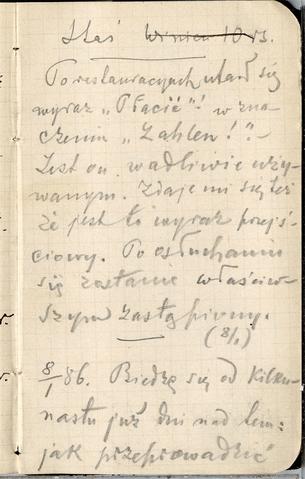 Staś winien 10 rs.
Po restauracyach utarł się
wyraz „Płacić"! w zna
czeniu „Zahlen!"-
Jest on wadliwie uży-
wanym. Zdaje mi się też
że jest to wyraz przejś
ciowy. Po osłuchaniu
się zostanie właściw-
szym zastąpiony.
(8/1)
8/1 86. Biedzę się od kilku-
nastu już dni nad tem:
jak przeprowadzić